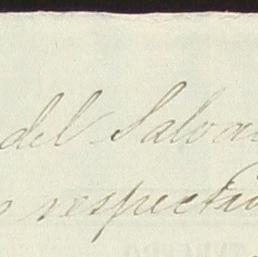 del Salva
respectiv